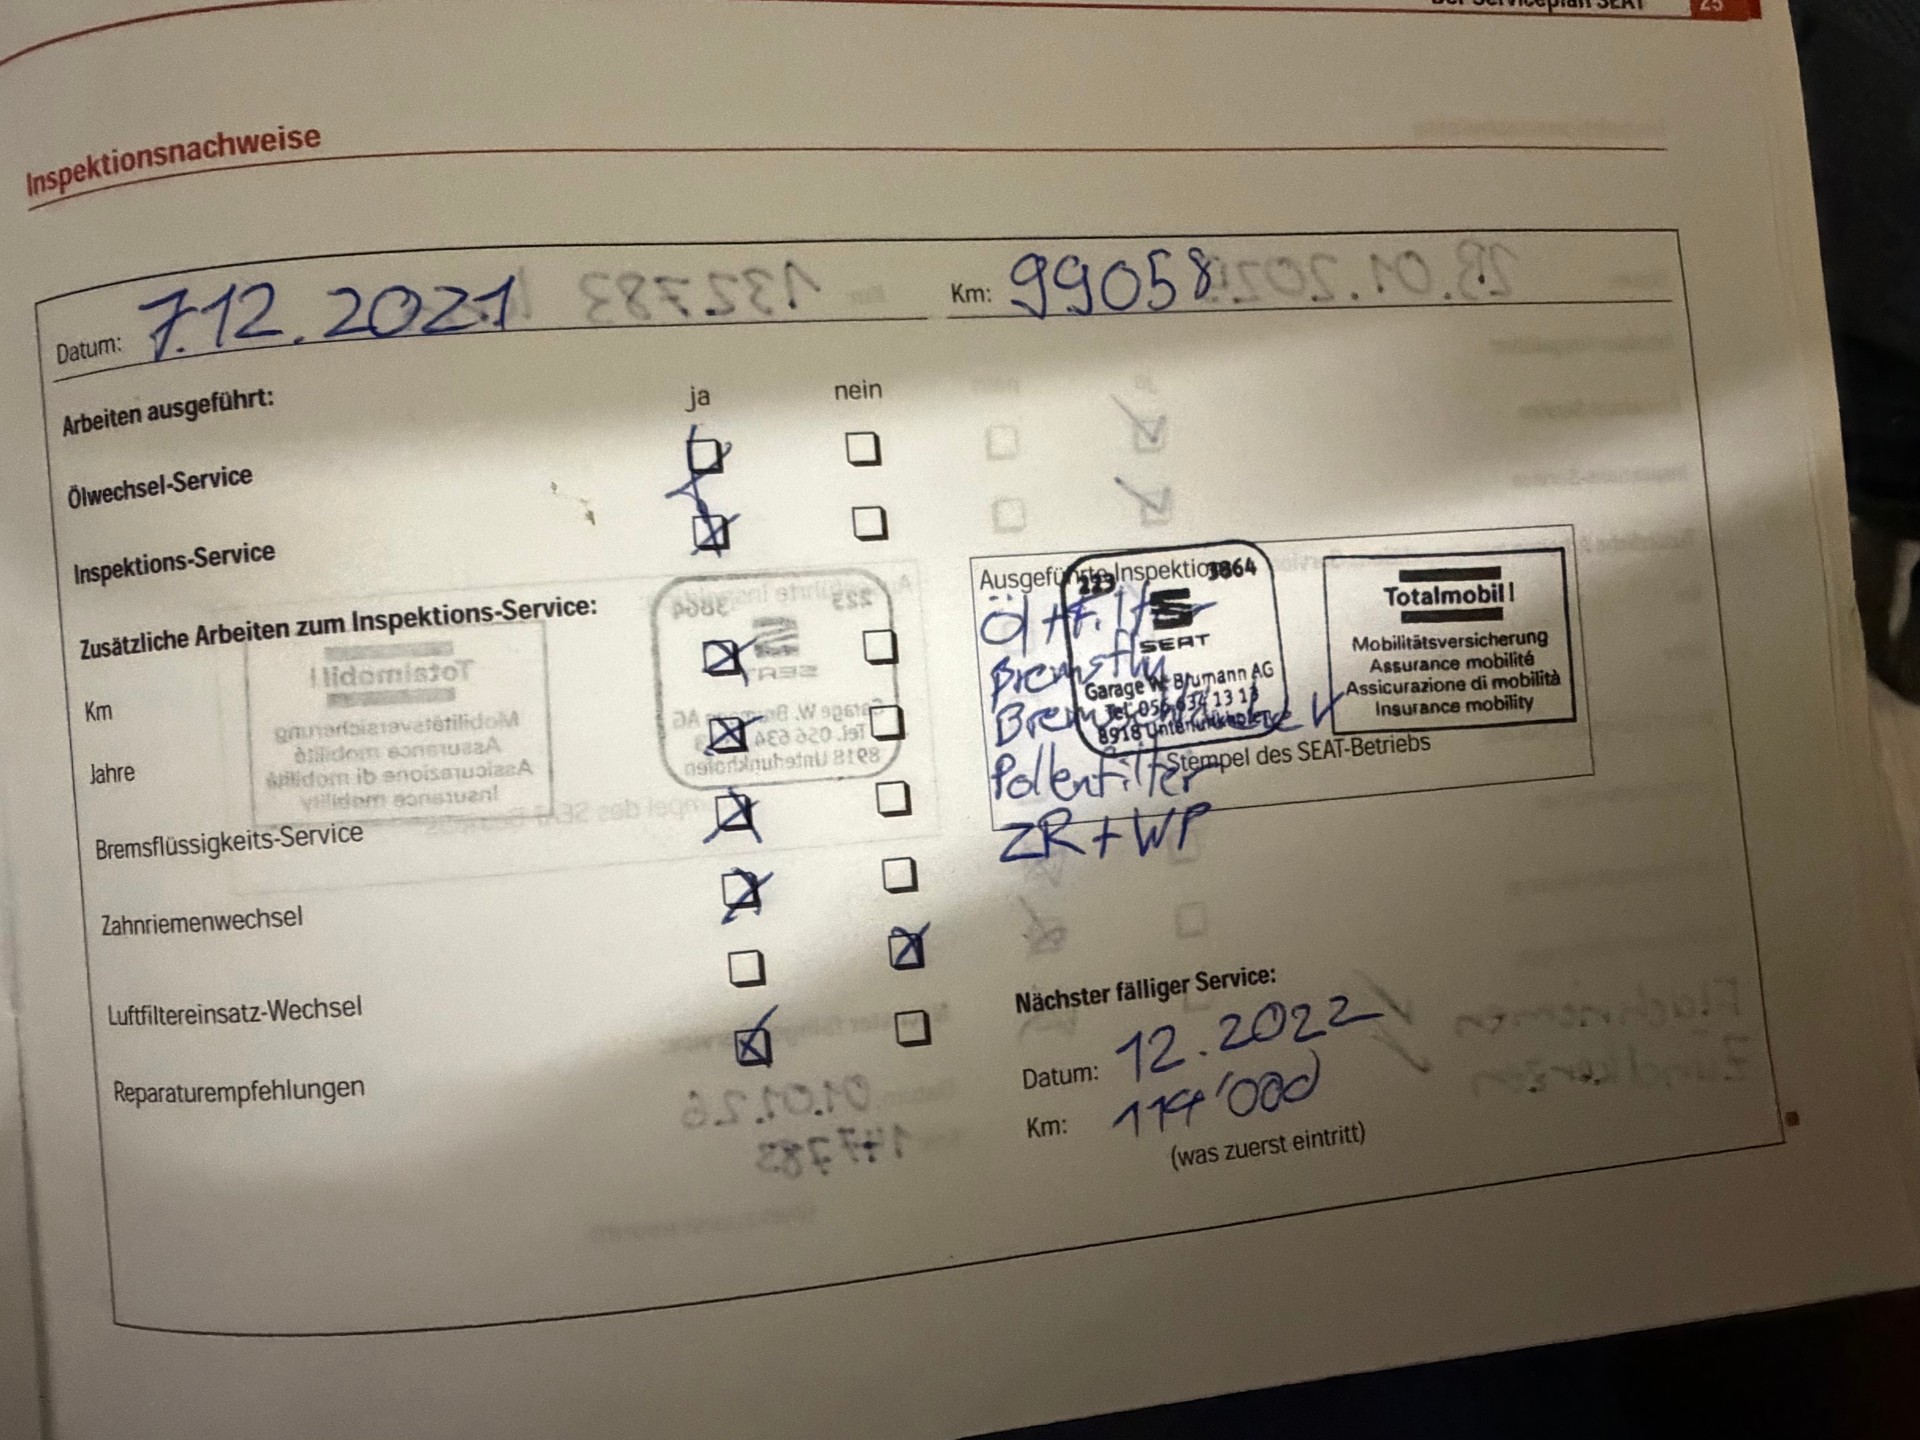 Der Serviceplan SEAT 25
Inspektionsnachweise
Datum: 7.12.2021 Km: 99058
Arbeiten ausgeführt: ja nein
Ölwechsel-Service
Inspektions-Service
Zusätzliche Arbeiten zum Inspektions-Service:
Km
Jahre
Bremsflüssigkeits-Service
Zahnriemenwechsel
Luftfiltereinsatz-Wechsel
Reparaturempfehlungen
Ausgeführte Inspektion
Öl + Filter
Bremsfl
Pollenfilter
ZR + WP
223 3864
SEAT
Garage W. Brumann AG
Tel. 056 634 13 13
8918 Unterlunkhofen
Totalmobil!
Mobilitätsversicherung
Assurance mobilité
Assicurazione di mobilità
Insurance mobility
Stempel des SEAT-Betriebs
Nächster fälliger Service:
Datum: 12.2022
Km: 114'000
(was zuerst eintritt)